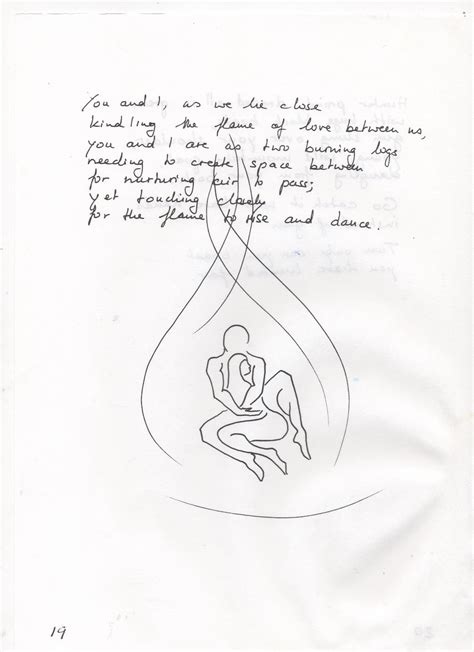 You and I, as we lie close
kindling the flame of love between us,
you and I are as two burning logs
needing to create space between
for nurturing air to pass;
yet touching closely
for the flame to rise and dance.
19